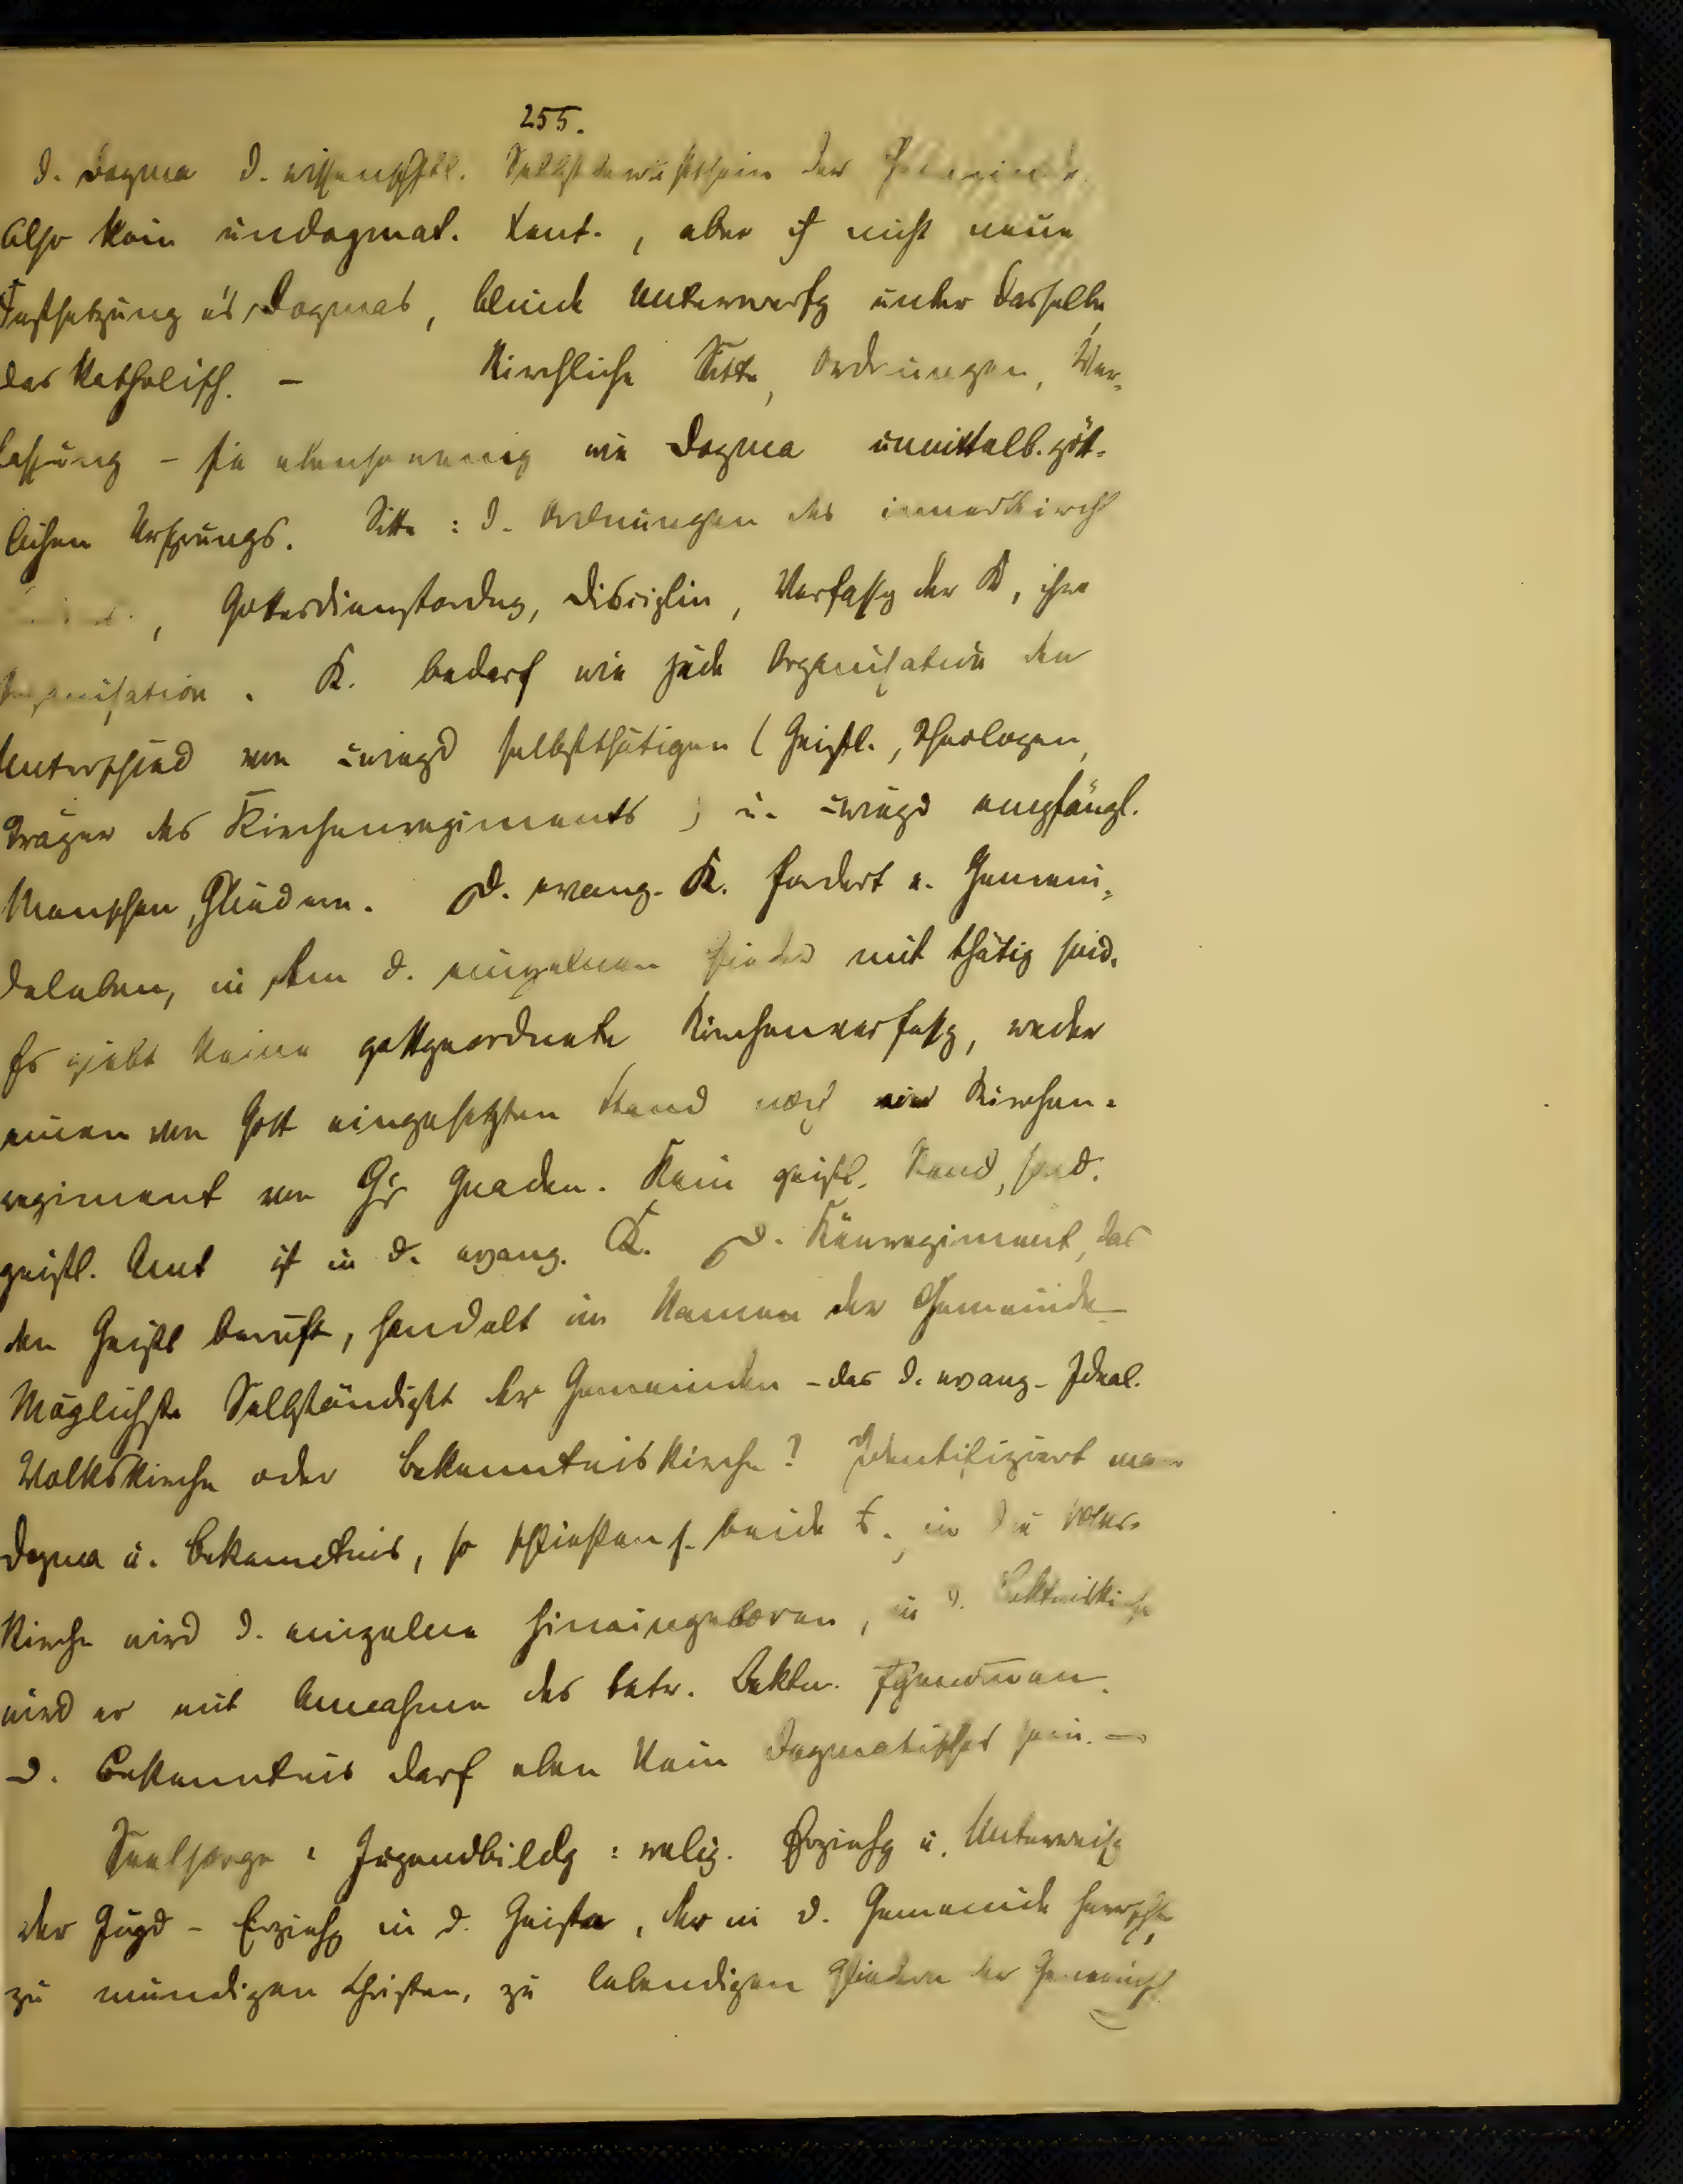 255.
D. Dogma d. wissenschftl. Selbstbewußtsein der Gemeinde.
Also kein undogmat. Xent., aber if nicht neue
Festsetzung e's Dogmas, blinde Unterwerfg unter dasselbe,
das katholisch. – Kirchliche Sitte, Ordnungen, Ver-
fassung – sie ebensowenig wie Dogma unmittelb. gött-
lichen Ursprungs. Sitte: d. Ordnungen des innerkirchl
, Gottesdienstordng, Disciplin, Verfassg der K, ihre
Organisation. K. bedarf wie jede Organisation den
Unterschied von überwiegd selbstthätigen (Geistl., Theologen,
Träger des Kirchenregiments) u. überwiegd empfängl.
Menschen, Gliedern. D. evang. K. fordert e. Gemein-
deleben, in dem d. einzelnen Glieder mit thätig sind.
Es giebt keine gottgeordnete Kirchenverfassg, weder
einen von Gott eingesetzten Stand noch ein Kirchen-
regiment von G's Gnaden. Kein geistl. Stand, sond.
geistl. Amt ist in d. evang. K. D. Kirenregiment, das
den Geistl beruft, handelt im Namen der Gemeinde
Möglichste Selbständigkt der Gemeinden – das d. evang. Ideal.
Volkskirche oder Bekenntniskirche? Identifiziert man
Dogma u. Bekenntnis, so schließen s. beide, in die Volks-
kirche wird d. einzelne hineingeboren, in d. Bektniskirche
wird er mit Annahme des betr. Bektn.
D. Bekenntnis darf eben kein dogmatisches sein. –
Seelsorge: Jugendbildg: relig. Erziehg u. Unterweisg
der Jugd – Erziehg in d. Geiste, der in d. Gemeinde herrscht,
zu mündigen Christen, zu lebendigen Gliedern der Gemeinschft